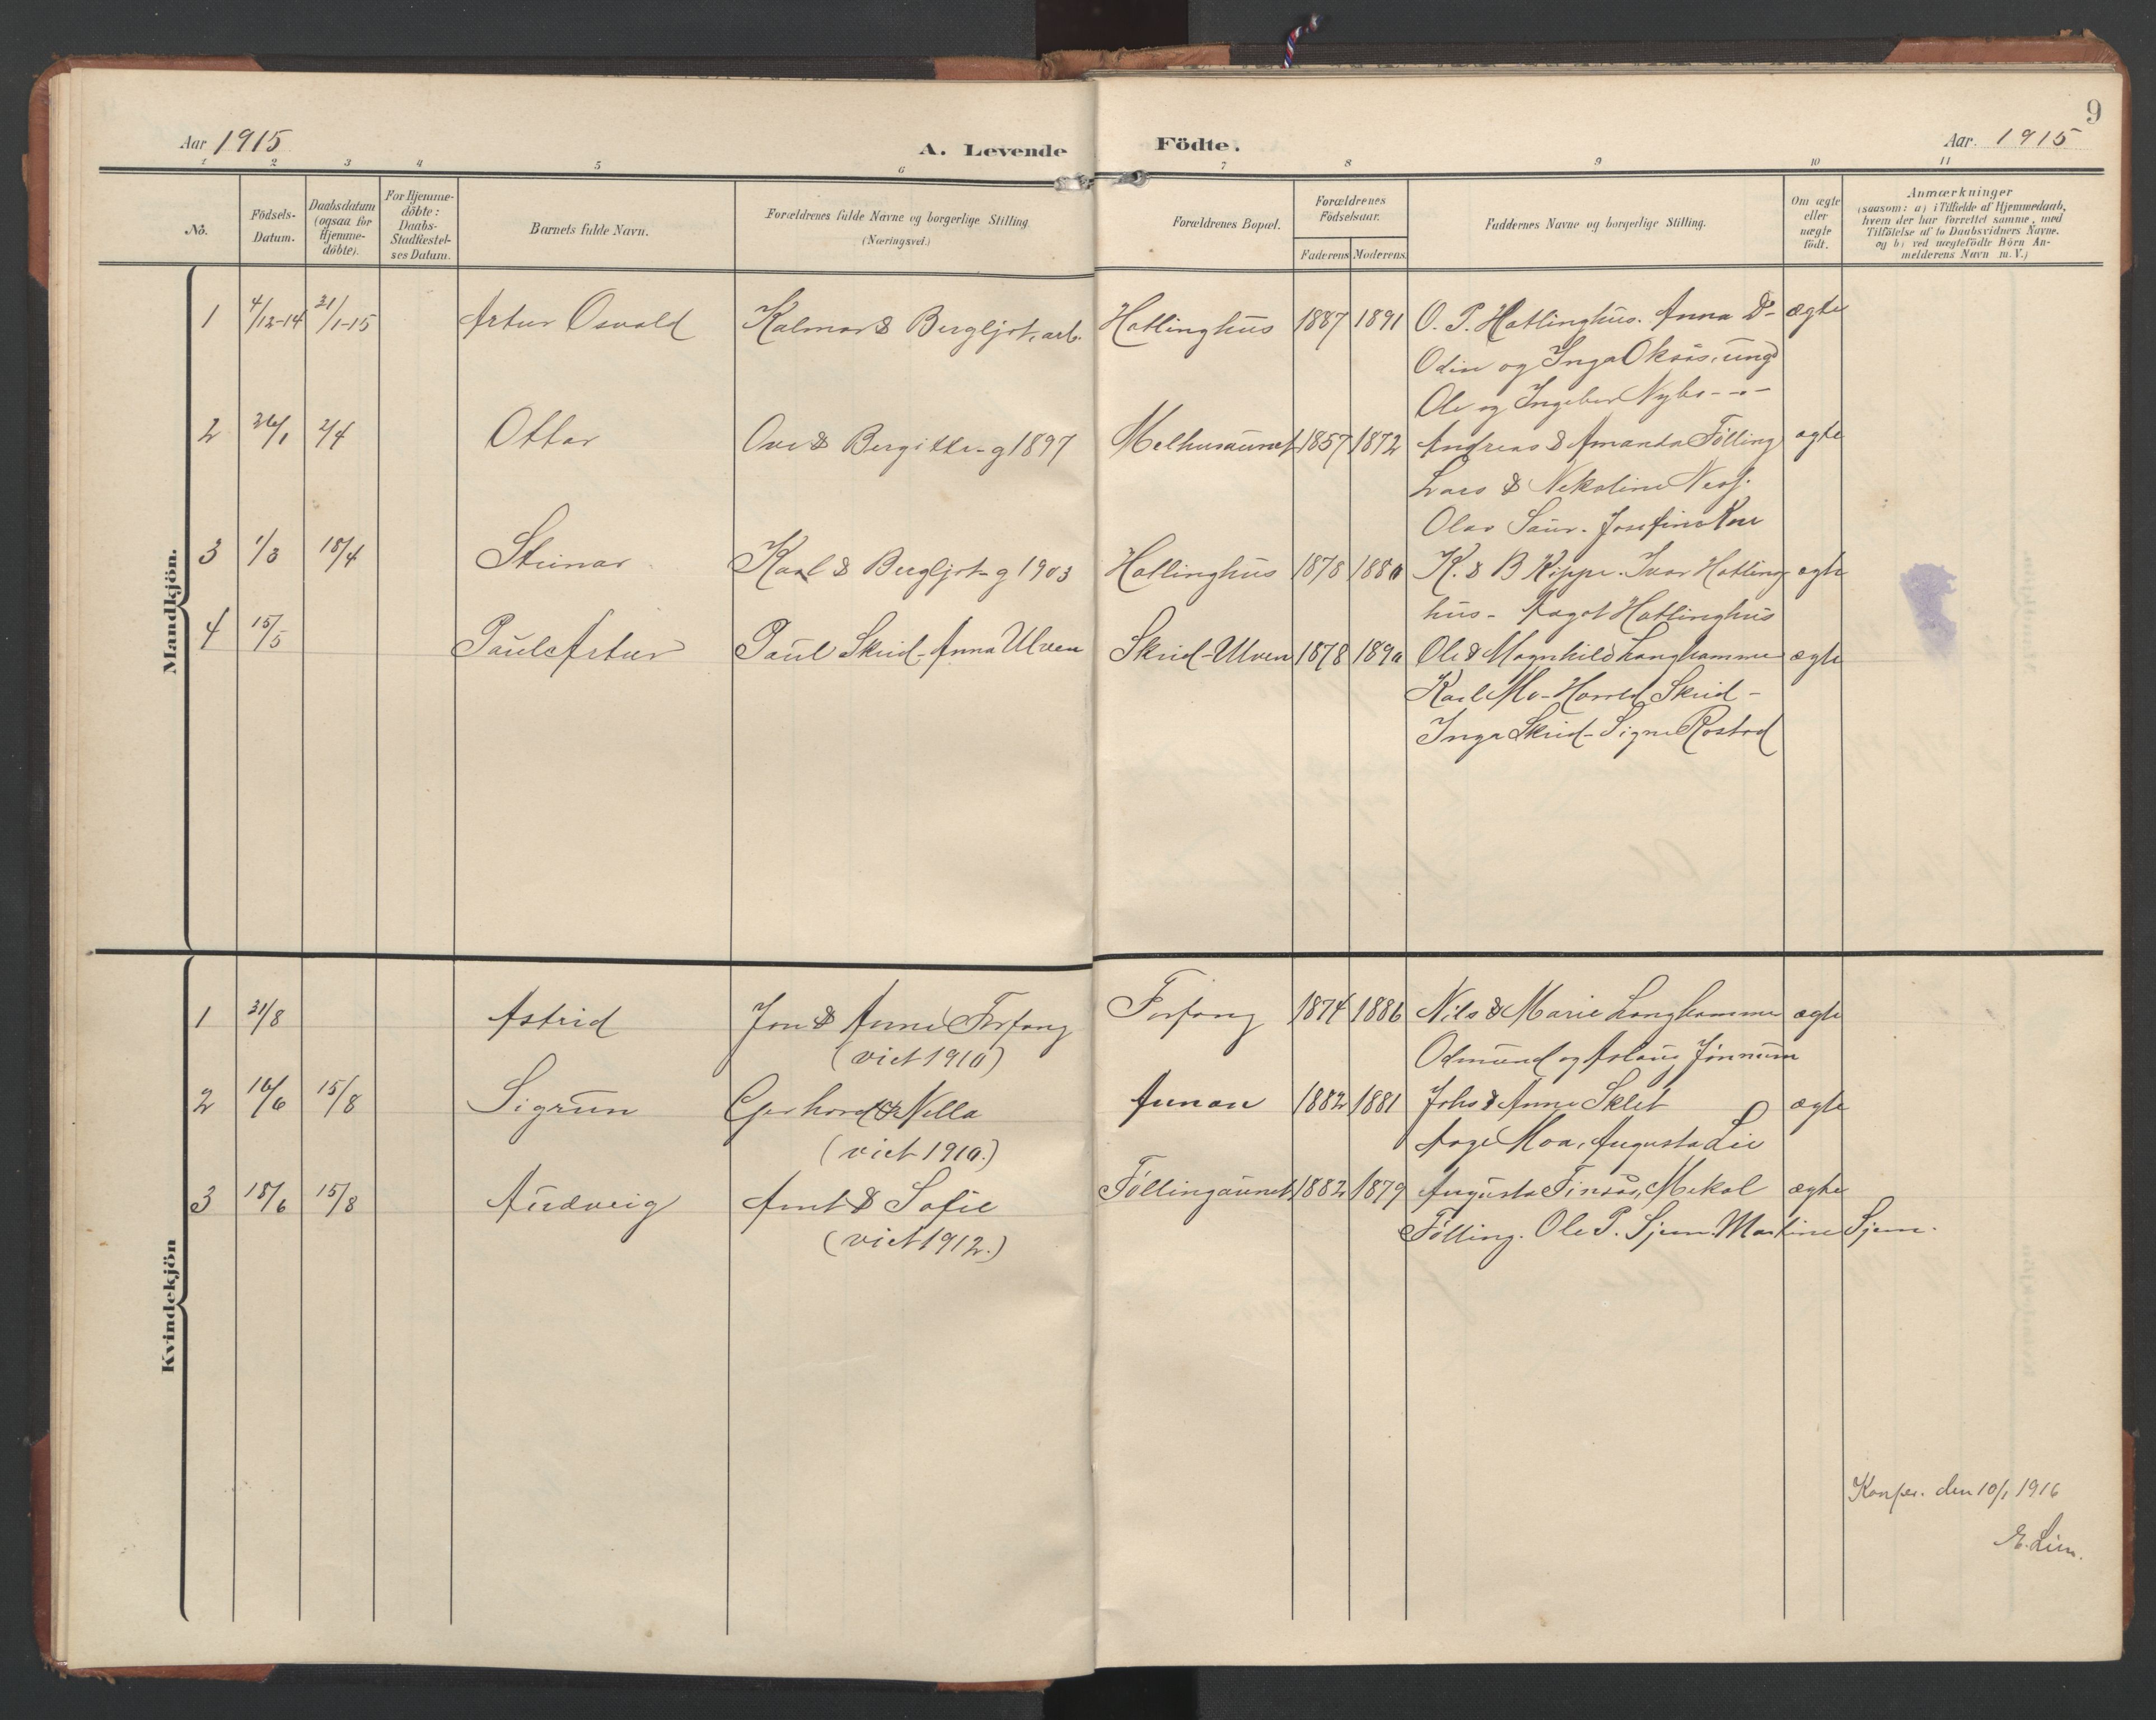 9
Aar 1915
A. Levende Födte.
Aar. 1915
1 2 3 4 5 6 7 8 9 10 11
No.
Födsels-Datum.
Daabsdatum (ogsaa for Hjemme-döbte).
For Hjemme-döbte: Daabs-Stadfæstel-ses Datum.
Barnets fulde Navn.
Forældrenes fulde Navne og borgerlige Stilling (Næringsvei.)
Forældrenes Bopæl.
Forældrenes Födselsaar.
Faderens Moderens
Faddernes Navne og borgerlige Stilling.
Om ægte eller uægte födt.
Anmærkninger
(saasom: a) i Tilfælde af Hjemmedaab,
hvem der har forrettet samme, med
Tilföielse af to Daabsvidners Navne.
og b) ved uægtefödte Börn An-
melderens Navn m. V.)
Mandkjön.
1 4/12-14 31/1-15 Artur Osvald Kalmar & Bergljot, arb. Hatlinghus 1887 1891 O. P. Hatlinghus. Anna Do- ægte
Odin og Inga Oksås, ungd
Ole og Ingeber Nybo - " -
2 26/1 2/4 Ottar Ove & Bergitte - g 1897 Melhusaunet 1857 1872 Andreas & Amanda Følling ægte
Lars & Nekoline
Olav Saur. Josefine
3 1/3 18/4 Steinar Karl & Bergljot - g 1903 Hatlinghus 1878 1880 K. & B Kippe. Ivar Hatling ægte
hus - Aagot Hatlinghus
4 15/5 Paul Artur Paul Skrid - Anna Ulven Skrid-Ulven 1878 1890 Ole & Magnhild Langhamme ægte
Karl Mo - Harald Skrid -
Inga Skrid - Signe Rostad
Kvindekjön
1 31/8 Astrid Jon & Anne Forfang Forfang 1874 1886 Nils & Marie Langhamme ægte
(viet 1910) Odmund og Aslaug Jønnum
2 16/6 15/8 Sigrun Gerhard & Nella Aunan 1882 1881 Johs & Anne Sklet ægte
(viet 1910.) Aage Moa, Augusta Lie
3 18/6 15/8 Audveig Arnt & Sofie Føllingaunet 1882 1879 Augusta Finsås, Mekal ægte
(viet 1912.) Følling. Ole P. Sjem. Martine Sjem.
Konfer. den 10/1 1916
E. Lien.